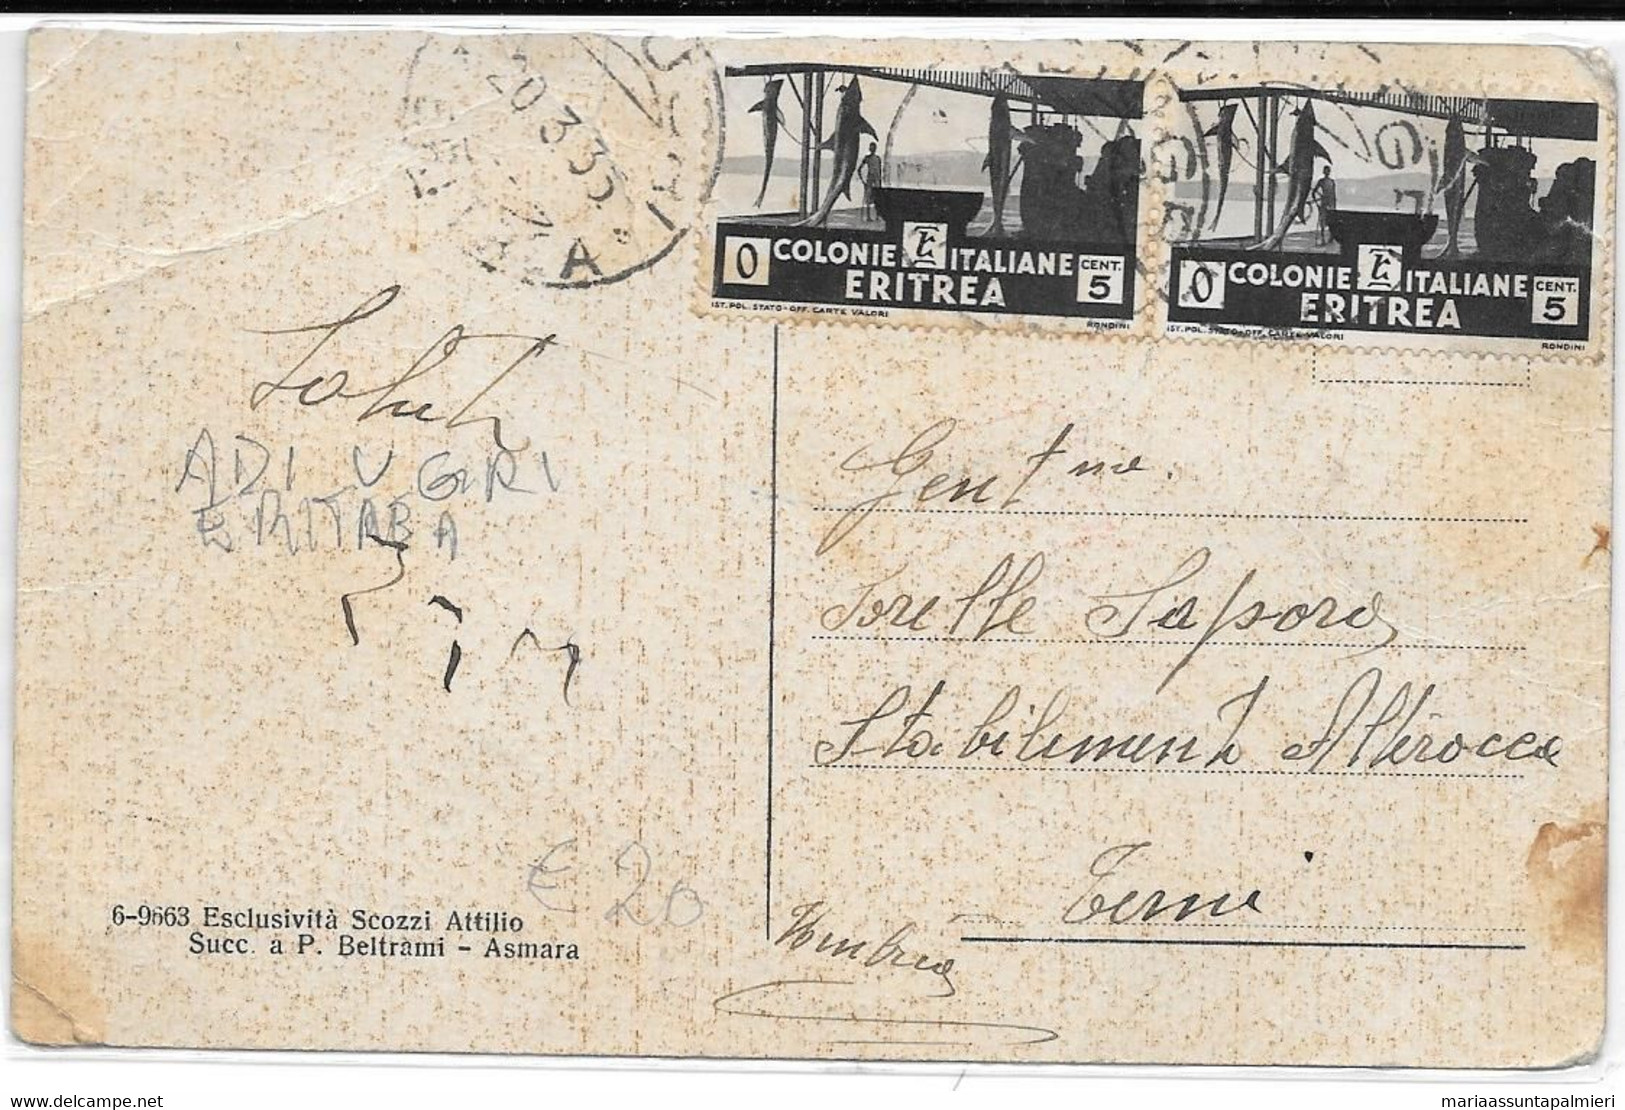 20 3 35
A
O COLONIE ITALIANE CENT. 5
ERITREA
IST. POL. STATO - OFF. CARTE VALORI RONDINI
O COLONIE ITALIANE CENT. 5
ERITREA
IST. POL. STATO - OFF. CARTE VALORI RONDINI
Saluti
ADI UGRI
ERITREA
Gent me.
Sorelle Sapora
Stabilimento Alterocca
Terni
Umbria
€ 20
6-9663 Esclusività Scozzi Attilio
Succ. a P. Beltrami - Asmara
mariaassuntapalmieri
delcampe.net